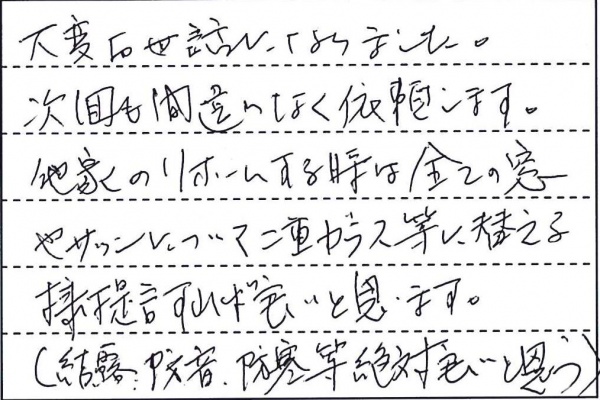 大変お世話になりました。
次回も間違いなく依頼します。
他家のリホームする時は全ての窓
やサッシについて二重ガラス等に替える
様提言すれば良いと思います。
(結露、防音、防寒等絶対良いと思う)